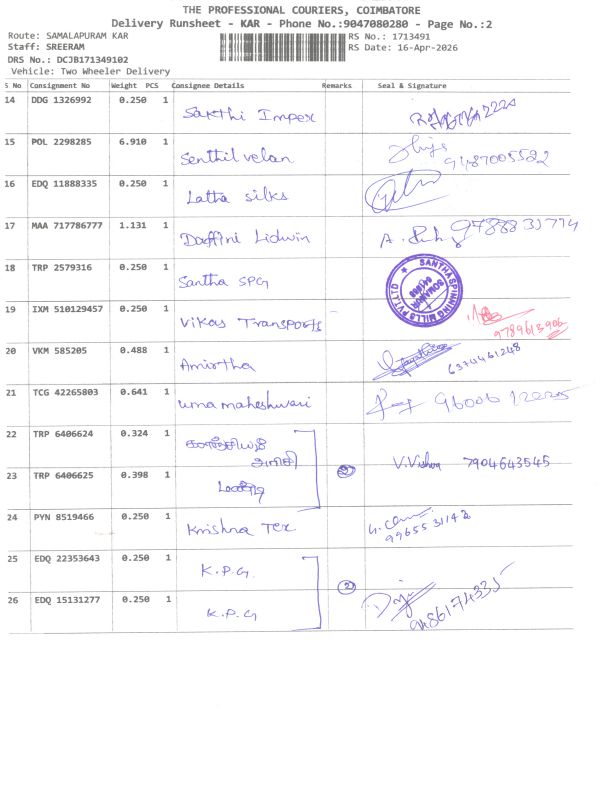 THE PROFESSIONAL COURIERS, COIMBATORE
Delivery Runsheet - KAR - Phone No.:9047080280 - Page No.:2
Route: SAMALAPURAM KAR
RS No.: 1713491
Staff: SREERAM
RS Date: 16-Apr-2026
DRS No.: DCJB171349102
Vehicle: Two Wheeler Delivery
S No Consignment No Weight PCS Consignee Details Remarks Seal & Signature
14 DDG 1326992 0.250 1 Sakthi Impex
15 POL 2298285 6.910 1 Senthil velan 9487005522
16 EDQ 11888335 0.250 1 Latha silks
17 MAA 717786777 1.131 1 Daffini Lidwin 9788831774
18 TRP 2579316 0.250 1 Santha SPG SANTHA SPINNING MILLS PVT LTD
19 IXM 510129457 0.250 1 Vikas Transports 9789613906
20 VKM 585205 0.488 1 Amirtha 6374461248
21 TCG 42265803 0.641 1 uma maheshwari 9600612225
22 TRP 6406624 0.324 1
2 V.Vishva 7904643545
23 TRP 6406625 0.398 1
24 PYN 8519466 0.250 1 Krishna Tex 9965531142
25 EDQ 22353643 0.250 1 K.P.G.
2
26 EDQ 15131277 0.250 1 K.P.G 9486174335